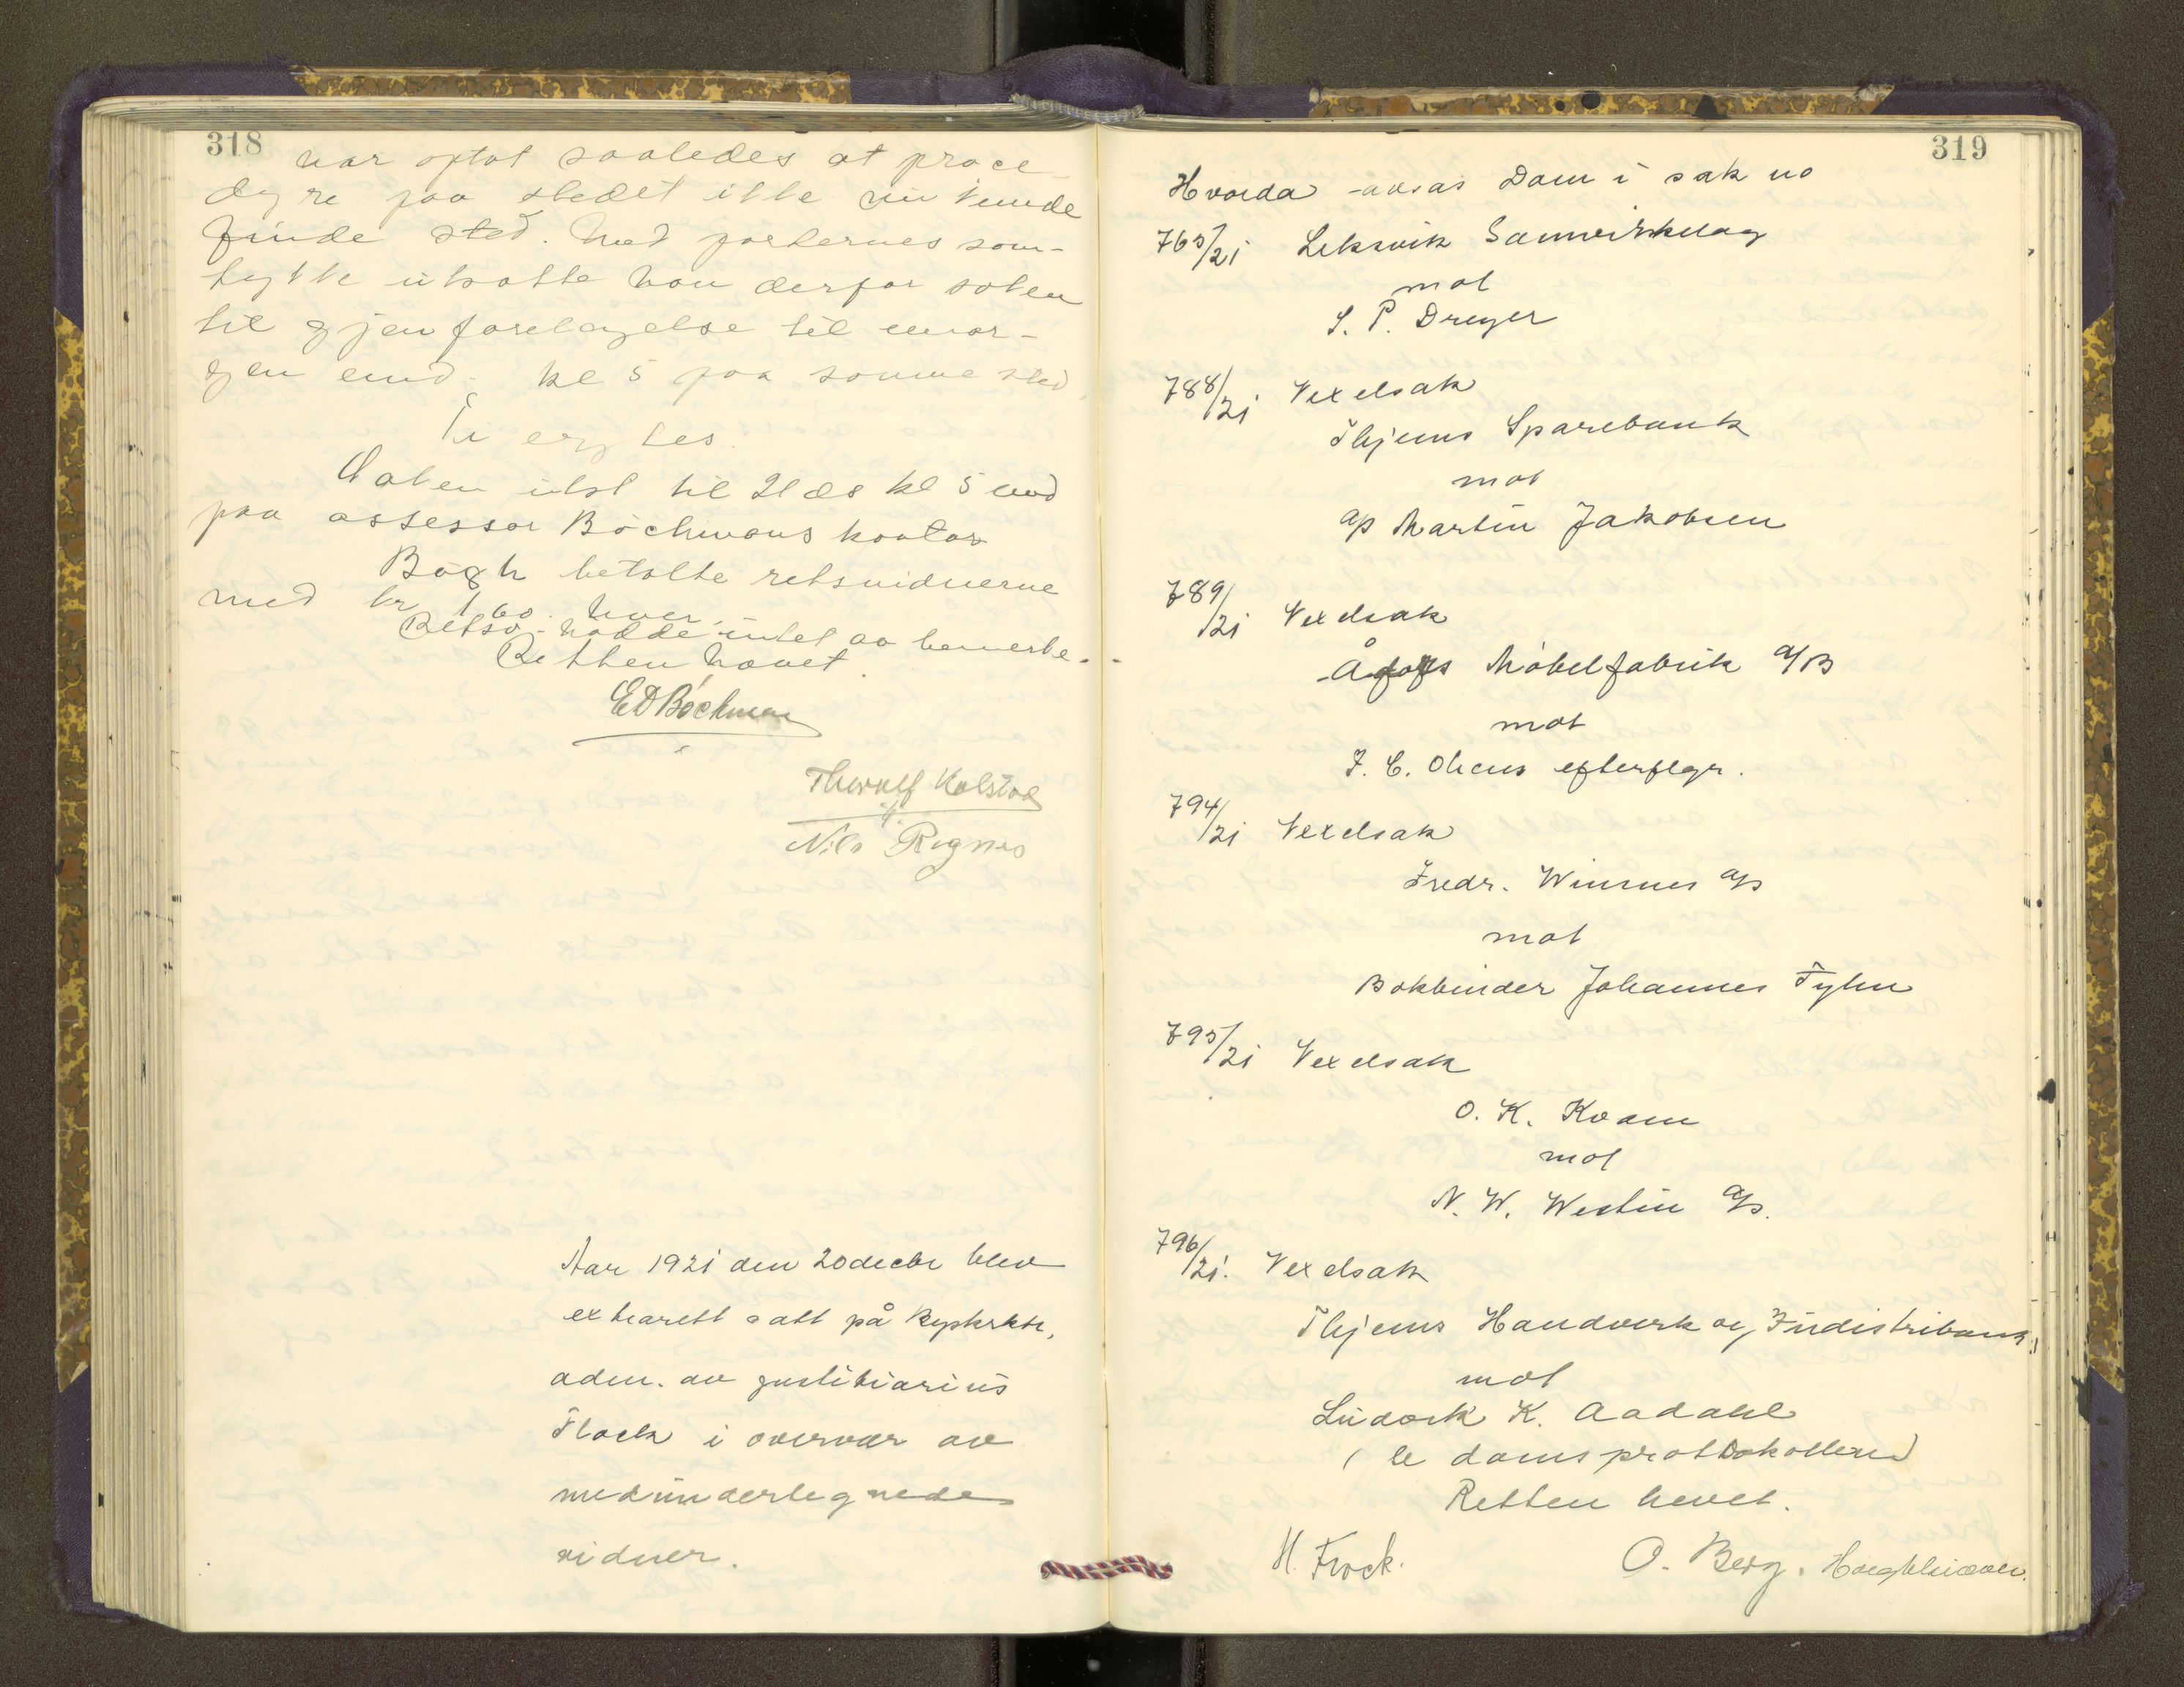 318
var optat saaledes at proce-
dyre paa stedet ikke nu kunde
finde sted. Med parternes sam-
tykke utsatte han derfor saken
til gjenforetagelse til imor-
gen emd. kl 5 paa samme sted
Ti erstes.
Saken utst til 21 ds kl 5 emd
paa assessor Böchmans kontor
Bögh betalte retsvidnerne
med kr 1,60 hver.
Retsv. hadde intet at bemerke.
Retten hævet.
ED Böchman
Thorralf Kolstad
Nils Rognes
Aar 1921 den 20 decbr blev
extrarett satt på Bypkskt.,
adm. av justitiarius
Flock i overvær av
medundertegnede
vidner.
319
Hvorda avsas Dom i sak no
765/21 Leksvik Samvirkelag
mot
S. P. Dreyer
788/21 Vexelsak
Thjems Sparebank
mot
A/S Martin Jakobsen
789/21 Vexelsak
Åfors Möbelfabrik A/B
mot
J. C. Olsens efterflgr.
794/21 Vexelsak
Fredr. Winsnes A/S
mot
Bokbinder Johannes Tyhn
795/21 Vexelsak
O. K. Kvam
mot
N. W. Westin A/S.
796/21. Vexelsak
Thjems Handverk og Industribank,
mot
Ludvik K. Aadahl
(se domsprotokollen)
Retten hevet.
H. Frock.
O. Berg.